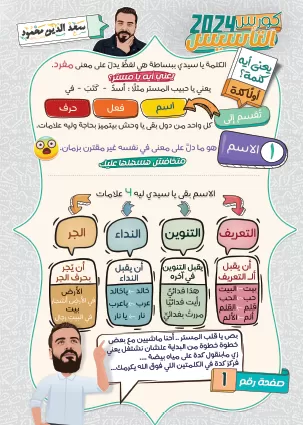 سعد الدين محمود
كورس 2024
التأسيس
يعني أيه كلمة؟
أولًا كدة
الكلمة يا سيدي ببساطة هي لفظ يدل على معنى مفرد.
يعني أيه يا مستر؟
يعني يا حبيب المستر مثلًا : أسدٌ - كَتَبَ - في
تقسم إلى
اسم
فعل
حرف
كل واحد من دول بقى يا وحش بيتميز بحاجة وليه علامات.
١ الاسم
هو ما دل على معنى في نفسه غير مقترن بزمان.
متخافش هسهلها عليك
الاسم بقى يا سيدي ليه ٤ علامات
التعريف
التنوين
النداء
الجر
أن يقبل الـ التعريف
بيت - البيت
حب - الحب
قلم - القلم
ألم - الألم
يقبل التنوين في آخره
هذا فدائيٌّ
رأيت فدائيًّا
مررتُ بفدائيٍّ
أن يقبل النداء
خالد - ياخالد
عرب - ياعرب
نار - يا نار
أن يُجر بحرف الجر
الأرض
بيت
بص يا قلب المستر .. أحنا ماشيين مع بعض
خطوة خطوة من البداية علشان نشتغل يعني
زي مابنقول كدة على مياه بيضة ....
فركز كدة في الكلمتين اللي فوق الله يكرمك...
صفحة رقم 1